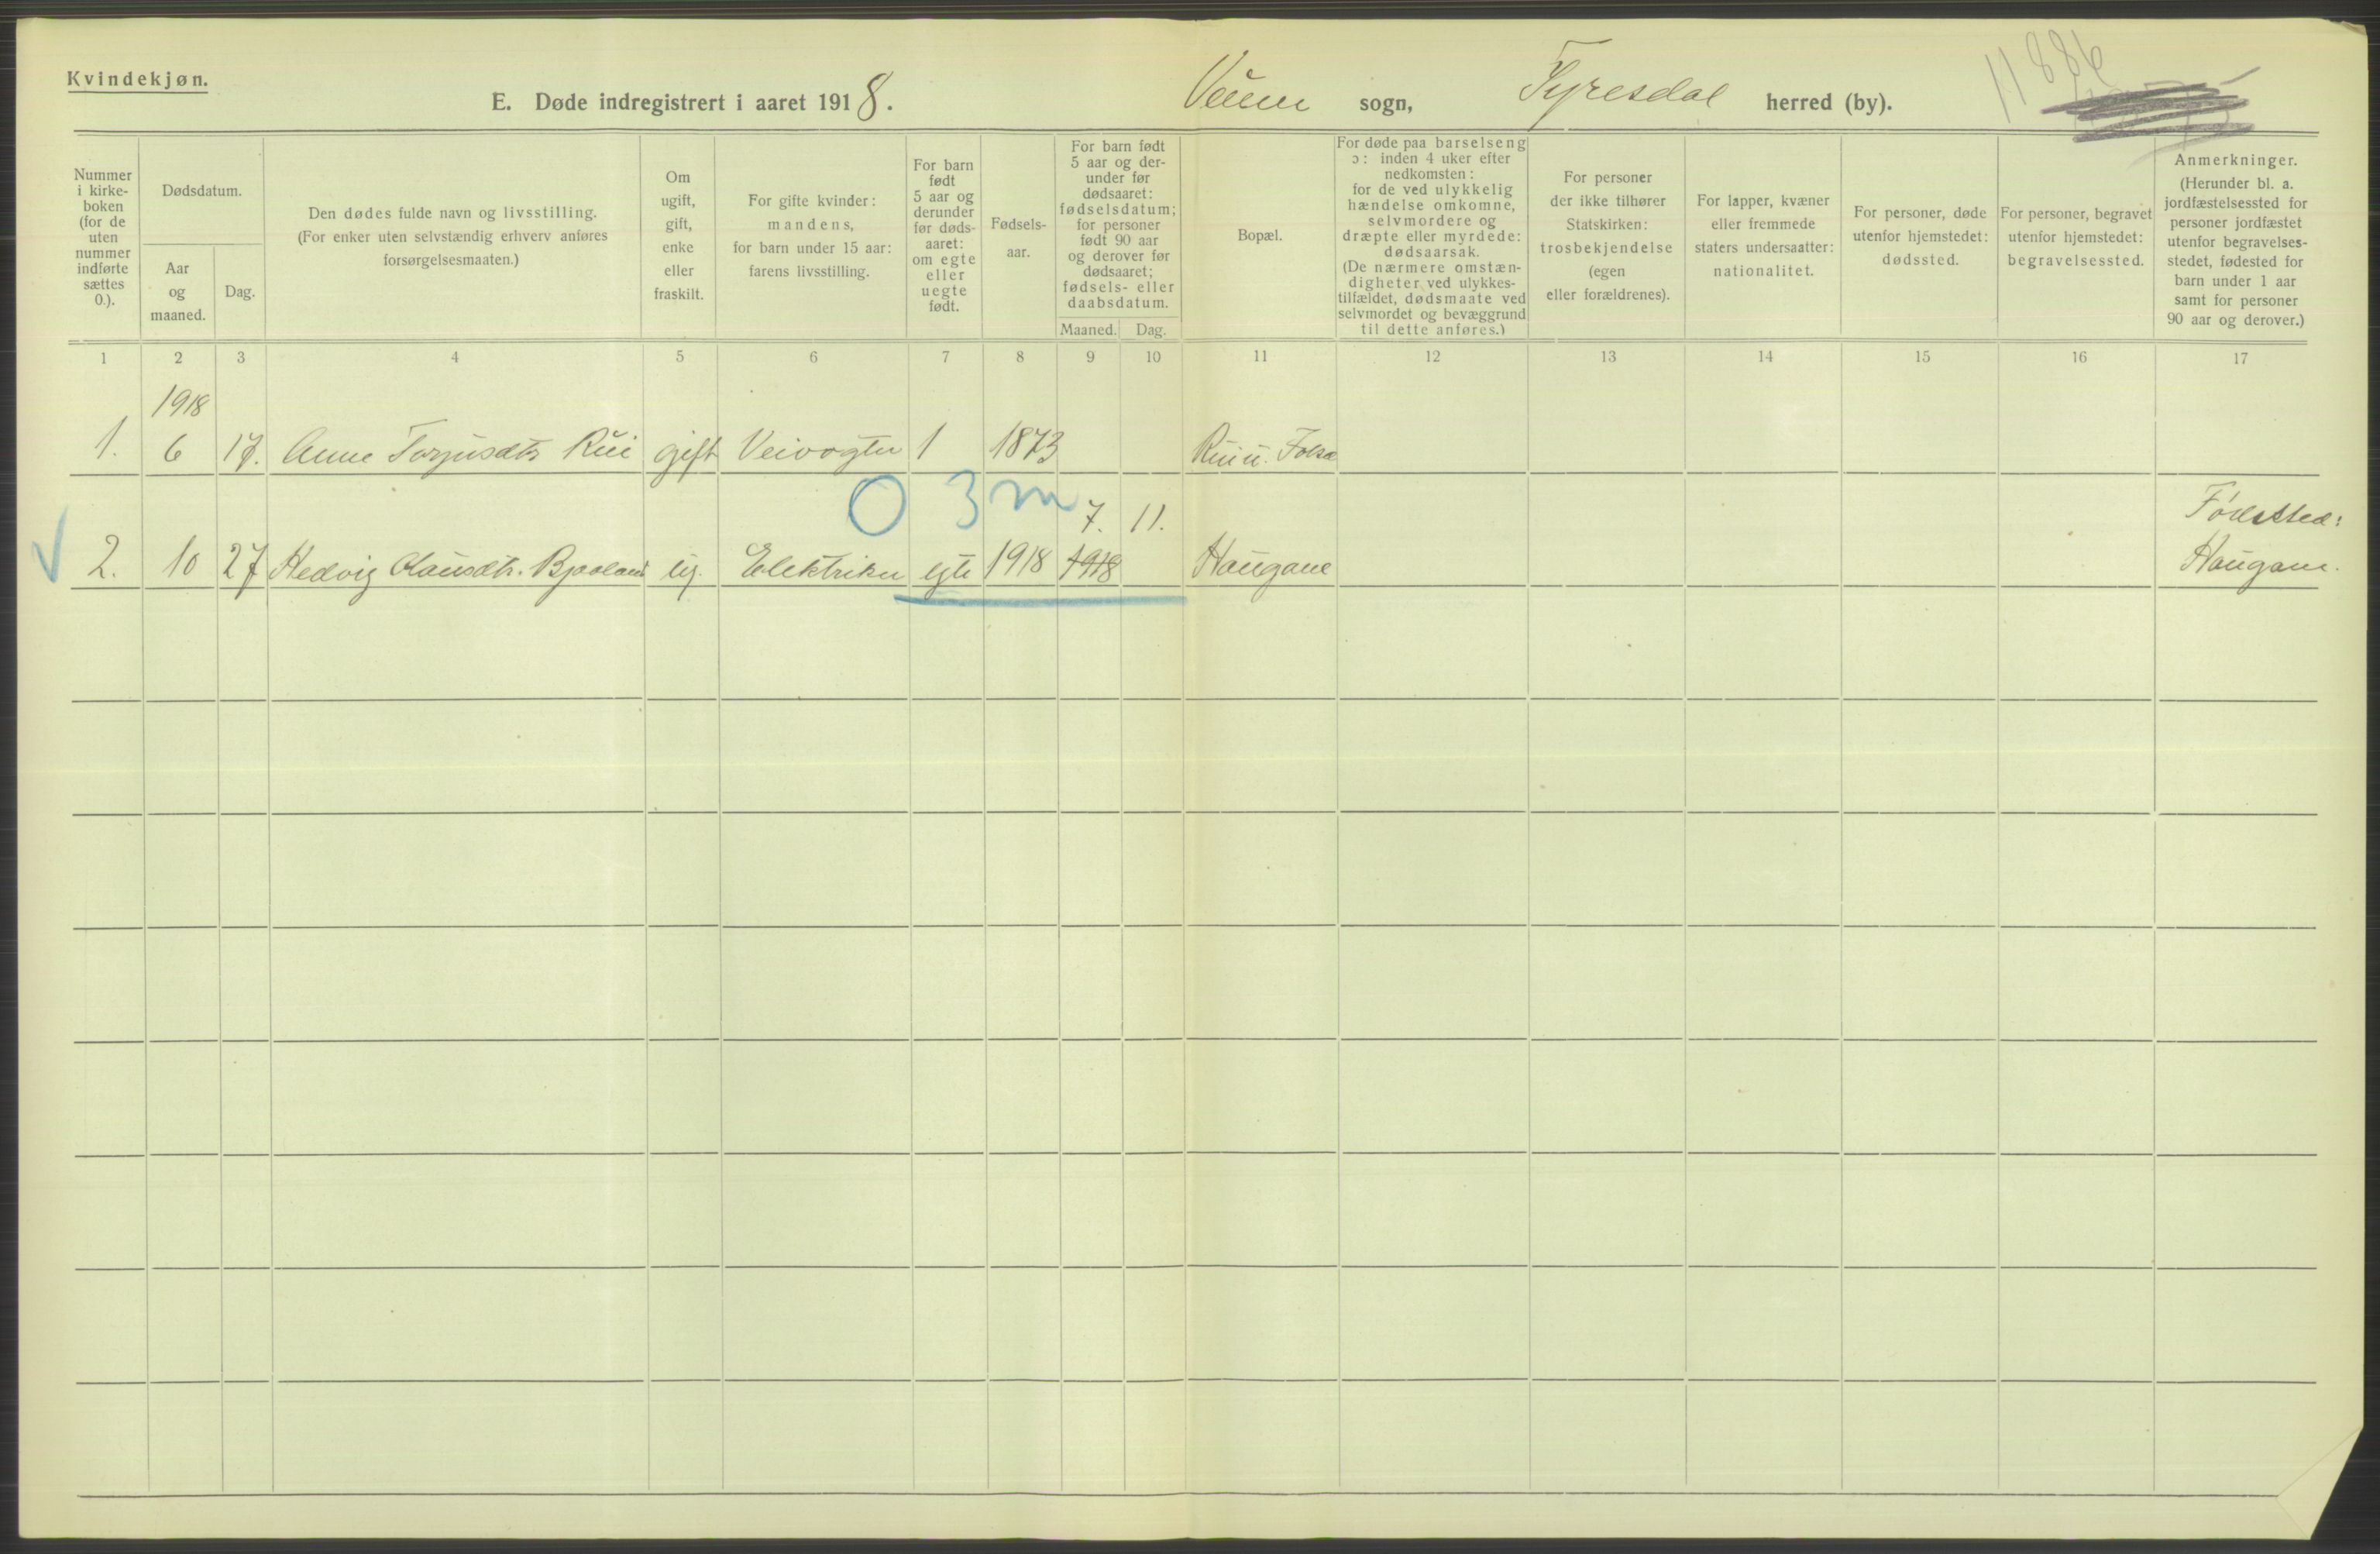 Kvindekjøn.
E. Døde indregistrert i aaret 1918. Veum sogn, Tyresdal herred (by). 11886
Nummer
i kirke-
boken
(for de
uten
nummer
indførte
sættes
0.).
Dødsdatum.
Aar
og
maaned.
Dag.
Den dødes fulde navn og livsstilling.
(For enker uten selvstændig erhverv anføres
forsørgelsesmaaten.)
Om
ugift,
gift,
enke
eller
fraskilt.
For gifte kvinder:
mandens,
for barn under 15 aar:
farens livsstilling.
For barn
født
5 aar og
derunder
før døds-
aaret:
om egte
eller
uegte
født.
Fødsels-
aar.
For barn født
5 aar og der-
under før
dødsaaret:
fødselsdatum;
for personer
født 90 aar
og derover før
dødsaaret;
fødsels- eller
daabsdatum.
Maaned. Dag.
Bopæl.
For døde paa barselseng
ɔ: inden 4 uker efter
nedkomsten:
for de ved ulykkelig
hændelse omkomne,
selvmordere og
dræpte eller myrdede:
dødsaarsak.
(De nærmere omstæn-
digheter ved ulykkes-
tilfældet, dødsmaate ved
selvmordet og bevæggrund
til dette anføres.)
For personer
der ikke tilhører
Statskirken:
trosbekjendelse
(egen
eller forældrenes).
For lapper, kvæner
eller fremmede
staters undersaatter:
nationalitet.
For personer, døde
utenfor hjemstedet:
dødssted.
For personer, begravet
utenfor hjemstedet:
begravelsessted.
Anmerkninger.
(Herunder bl. a.
jordfæstelsessted for
personer jordfæstet
utenfor begravelses-
stedet, fødested for
barn under 1 aar
samt for personer
90 aar og derover.)
1 2 3 4 5 6 7 8 9 10 11 12 13 14 15 16 17
1918
1. 6 17. Anne Torjusdtr Rui gift Veivogter 1 1873 Rui u.
0 3 m 7. 11. Fødested:
2. 10 27 Hedvig Clausdtr. Bjaaland ug. Elektriker egte 1918 1918 Haugane Haugane.